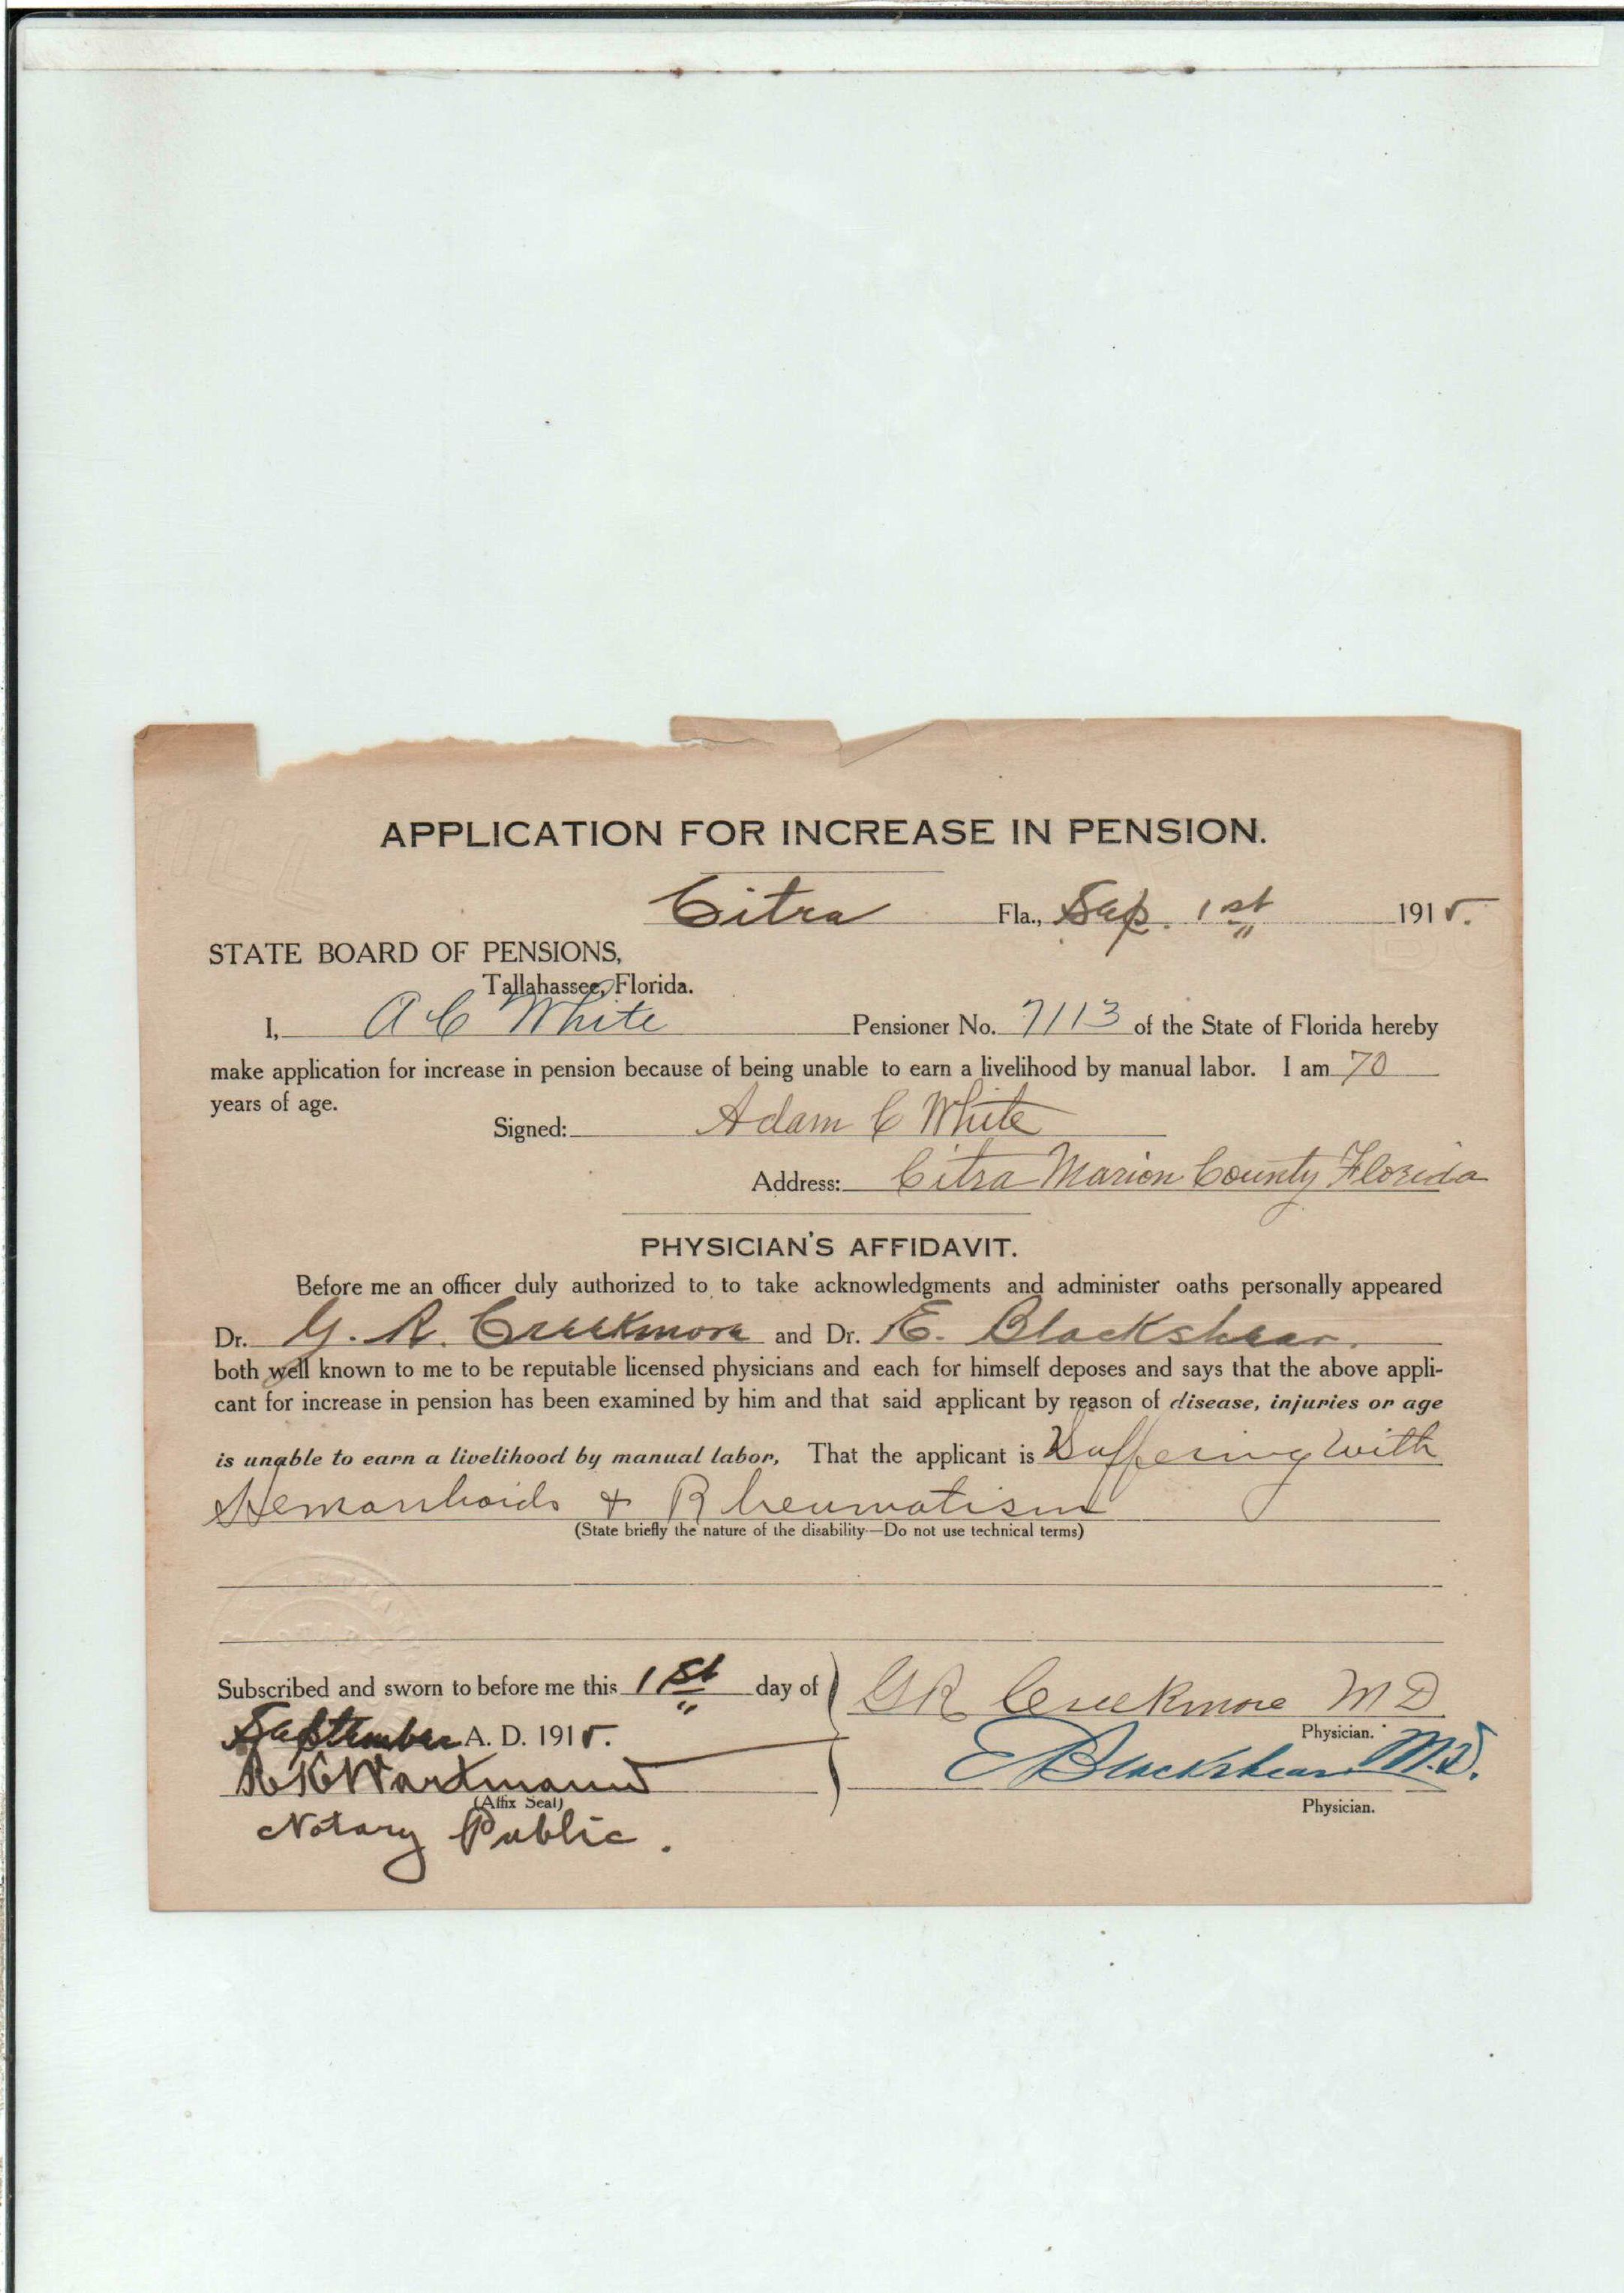 APPLICATION FOR INCREASE IN PENSION.
Citra Fla., Sep. 1st 1915.
STATE BOARD OF PENSIONS,
Tallahassee, Florida.
I, A C White Pensioner No. 7113 of the State of Florida hereby
make application for increase in pension because of being unable to earn a livelihood by manual labor. I am 70
years of age.
Signed: Adam C White
Address: Citra Marion County Florida
PHYSICIAN'S AFFIDAVIT.
Before me an officer duly authorized to to take acknowledgments and administer oaths personally appeared
Dr. G. R. Creekmore and Dr. E. Blackshear.
both well known to me to be reputable licensed physicians and each for himself deposes and says that the above appli-
cant for increase in pension has been examined by him and that said applicant by reason of disease, injuries or age
is unable to earn a livelihood by manual labor, That the applicant is Suffering with
Hemorrhoids + Rheumatism
(State briefly the nature of the disability—Do not use technical terms)
Subscribed and sworn to before me this 1st day of
September A. D. 1915.
GR Creekmore MD
Physician.
R K Wartmann
(Affix Seal)
E Blackshear M.D.
Physician.
Notary Public.